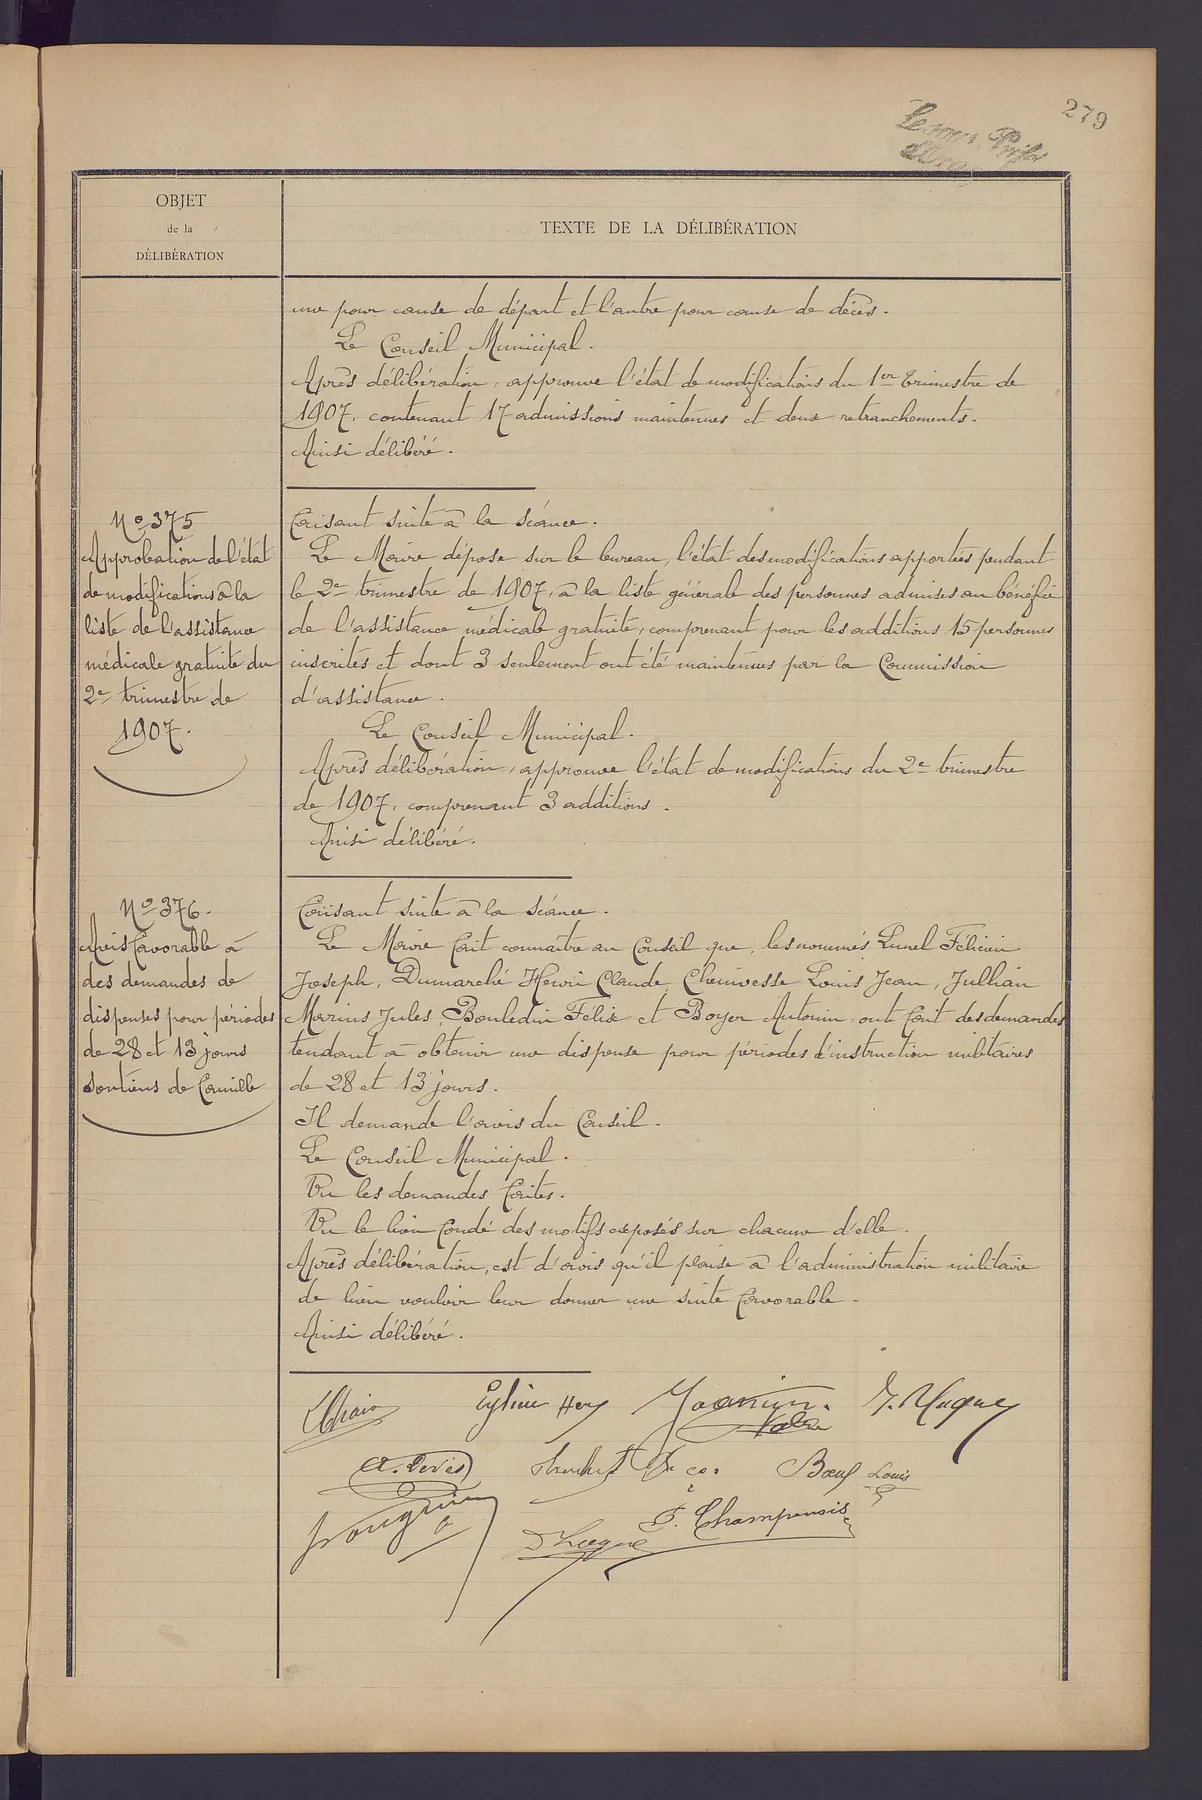 279
Le sous Préfet
OBJET
de la
DÉLIBÉRATION
TEXTE DE LA DÉLIBÉRATION
une pour cause de départ et l'autre pour cause de décès.
Le Conseil Municipal.
Après délibération, approuve l'état de modifications du 1er trimestre de
1907, contenant 17 admissions maintenues et deux retranchements.
Ainsi délibéré.
No 375
Approbation de l'état
de modifications à la
liste de l'assistance
médicale gratuite du
2e trimestre de
1907.
Faisant suite à la séance.
Le Maire dépose sur le bureau, l'état des modifications apportées pendant
le 2e trimestre de 1907, à la liste générale des personnes admises au bénéfice
de l'assistance médicale gratuite, comprenant pour les additions 15 personnes
inscrites et dont 3 seulement ont été maintenues par la Commission
d'assistance.
Le Conseil Municipal.
Après délibération, approuve l'état de modifications du 2e trimestre
de 1907, comprenant 3 additions.
Ainsi délibéré.
No 376.
Avis favorable à
des demandes de
dispenses pour périodes
de 28 et 13 jours
soutiens de famille
Faisant suite à la séance.
Le Maire fait connaître au Conseil que, les nommés Lunel Félicien
Joseph, Dumarché Henri Claude, Cheinvesse Louis Jean, Jullian
Marius Jules, Bouledin Félix et Boyer Antonin, ont fait des demandes
tendant à obtenir une dispense pour périodes d'instruction militaires
de 28 et 13 jours.
Il demande l'avis du Conseil.
Le Conseil Municipal.
Vu les demandes faites.
Vu le bien fondé des motifs exposés sur chacune d'elle.
Après délibération, est d'avis qu'il plaise à l'administration militaire
de bien vouloir leur donner une suite favorable.
Ainsi délibéré.
Joannin.
A. Devès
Bœuf Louis
P. Champensois